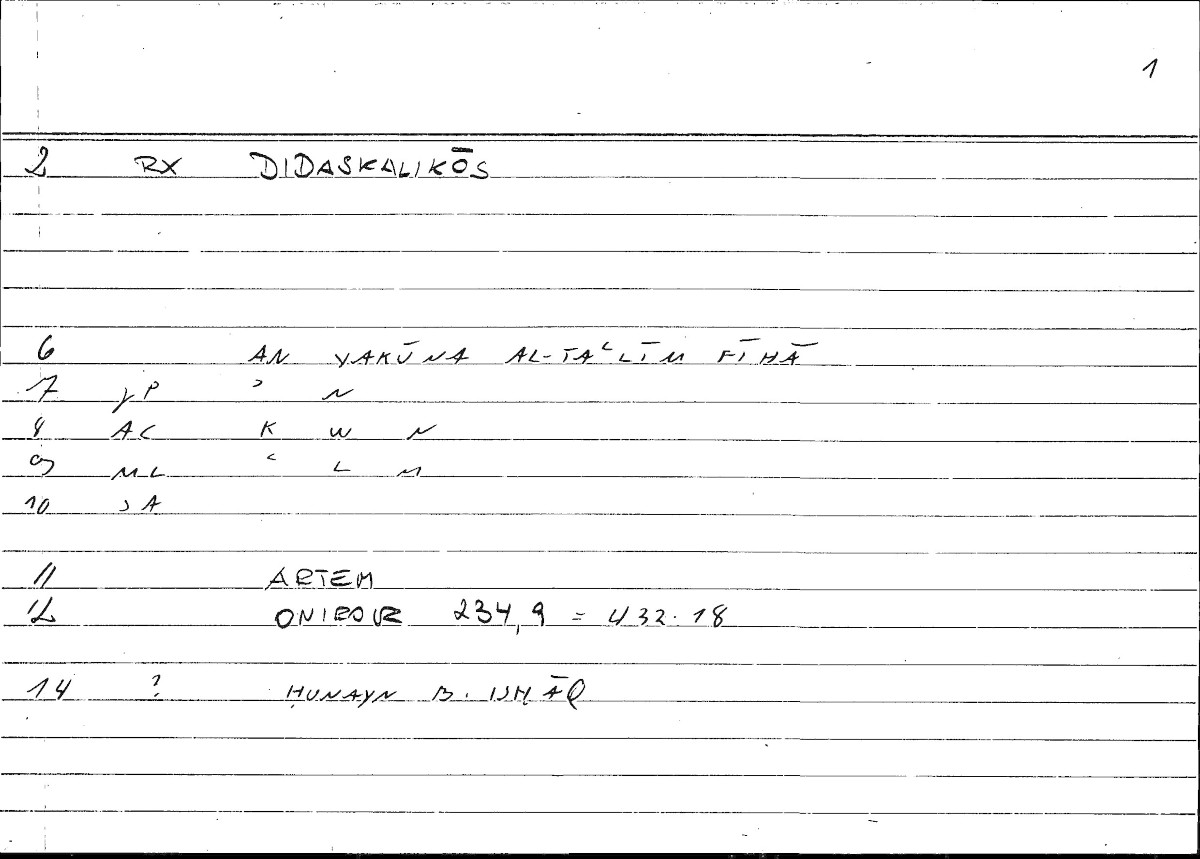 1
2 RX DIDASKALIKŌS
6 AN YAKŪNA AL-TAʿLĪM FĪHĀ
7 γP ʾ N
8 AC K W N
9 ML ʿ L M
10 ɔ A
11 ARTEM
12 ONIROCR 234,9 = 432.18
14 ? ḤUNAYN B. ISḤĀQ